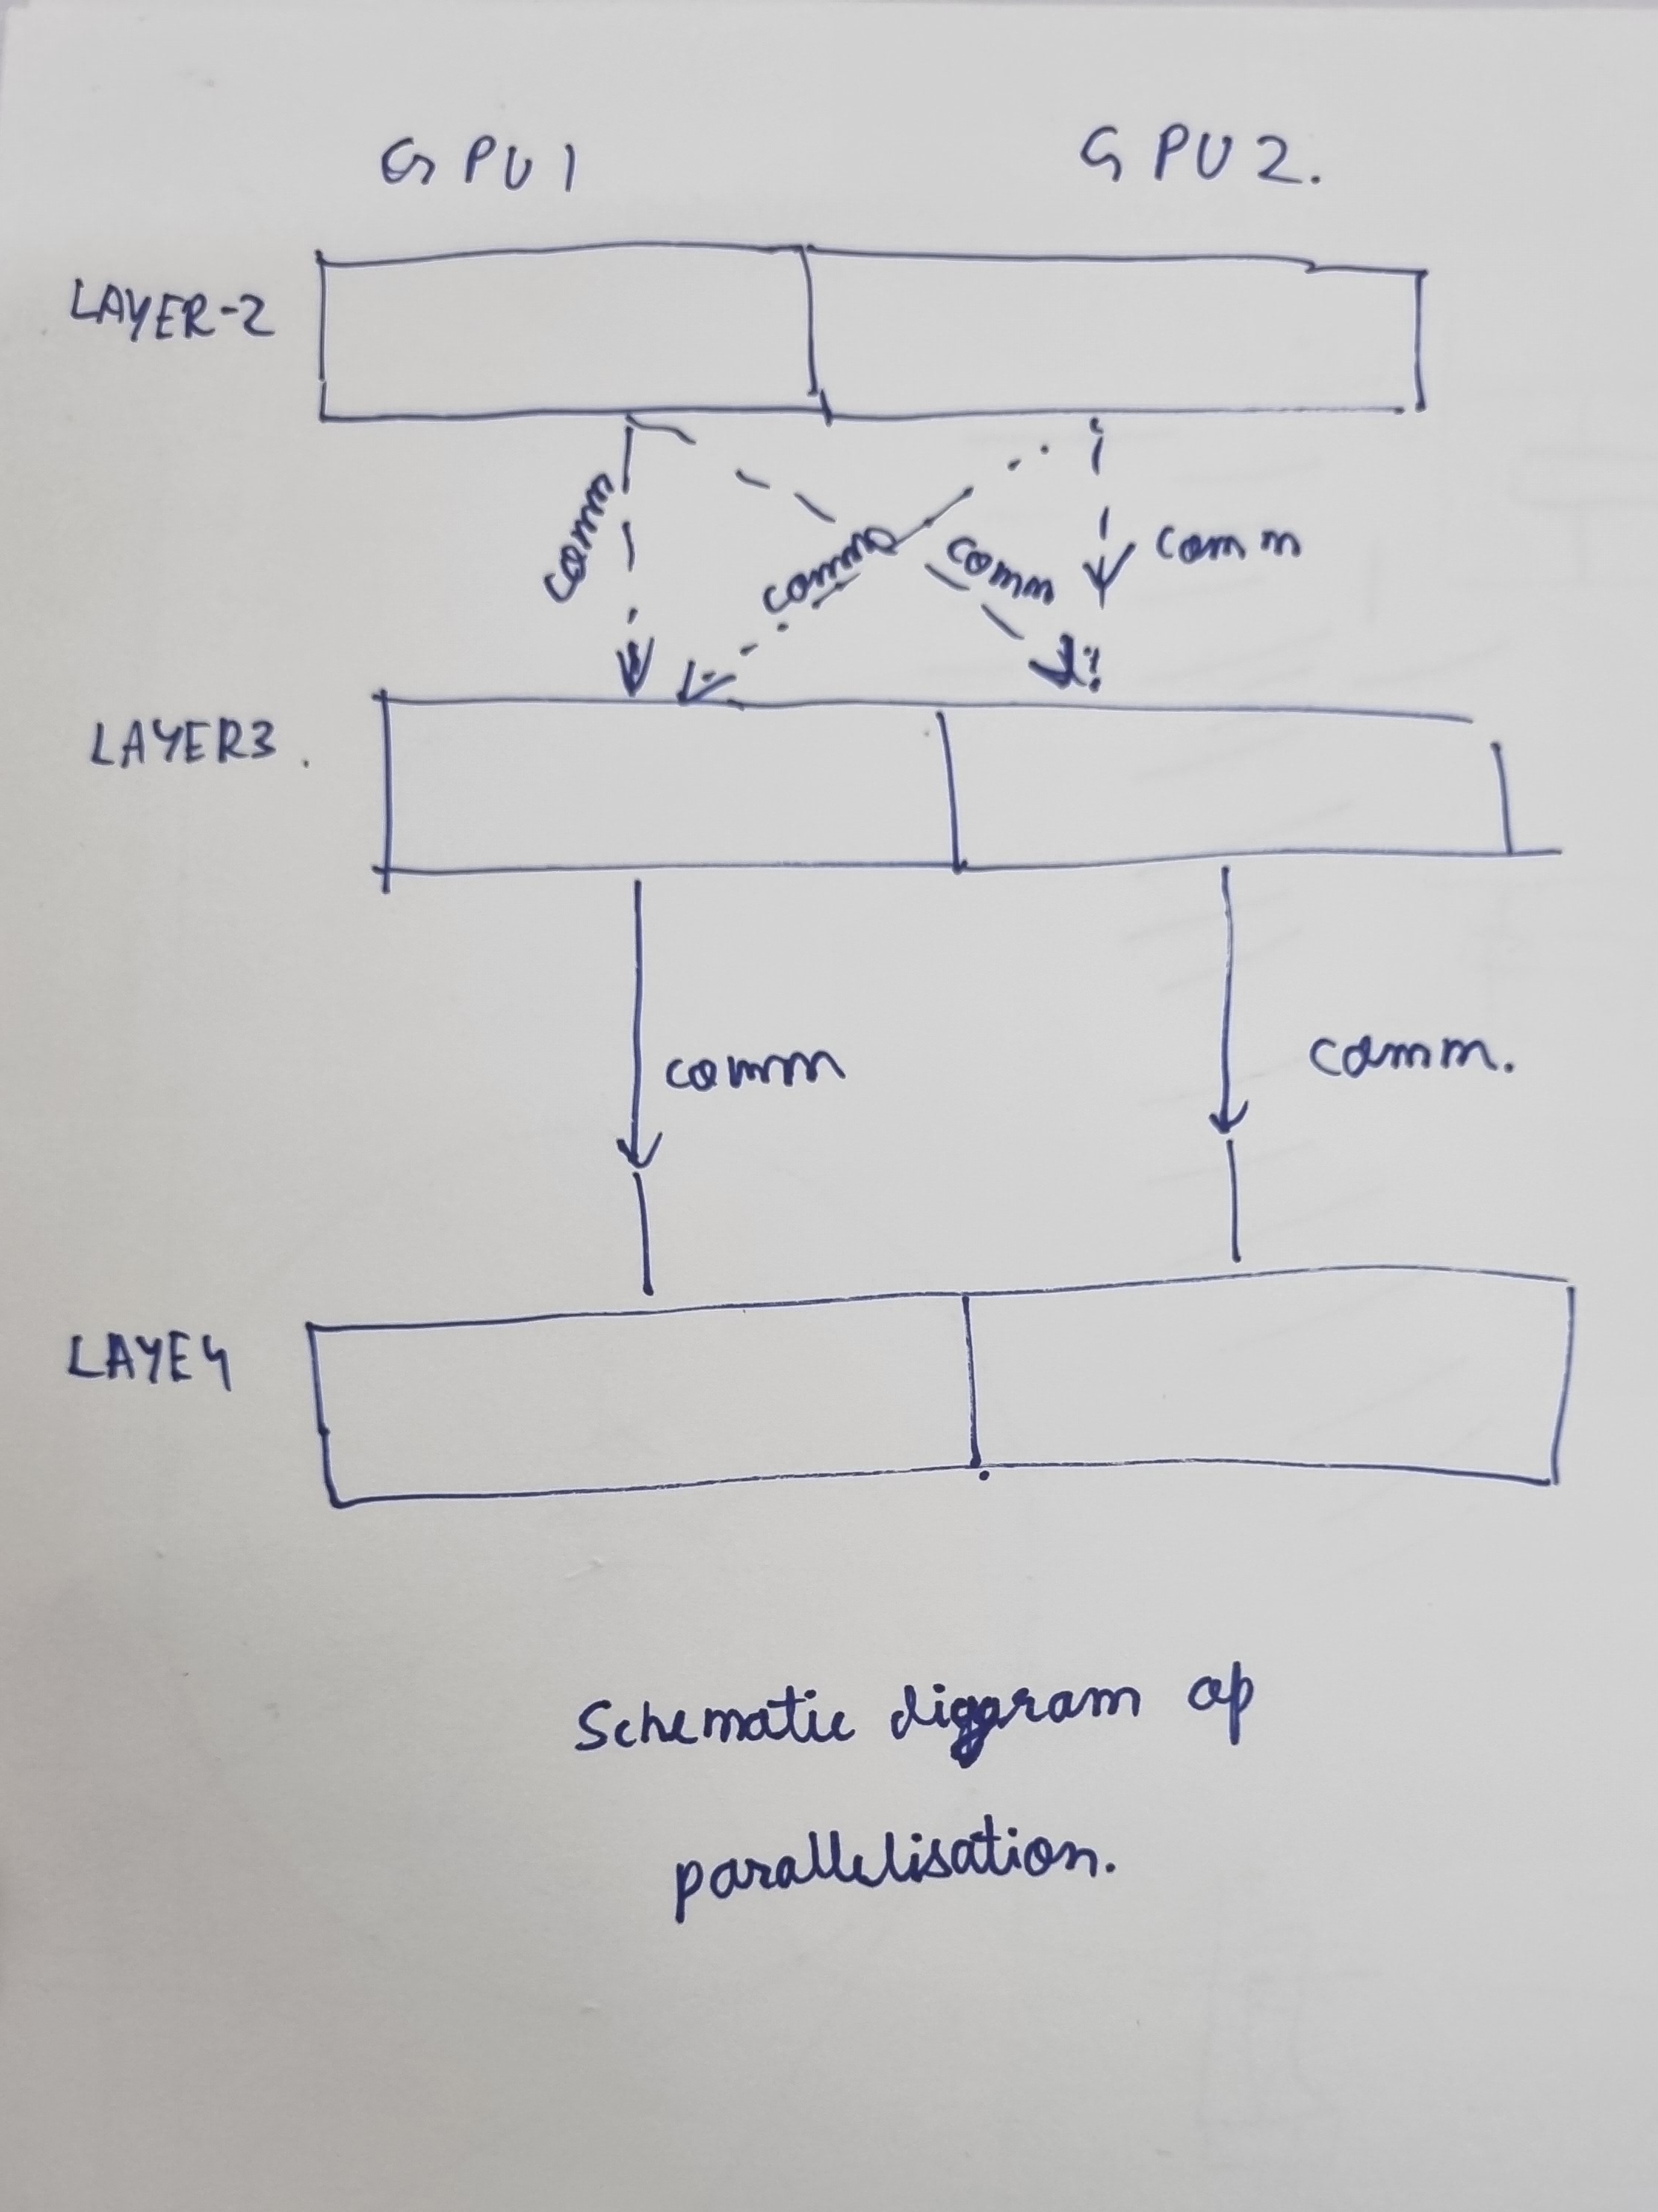 GPU1 GPU2.
LAYER-2
comm comm comm comm
LAYER3.
comm comm.
LAYE4
Schematic diggram op
parallelisation.